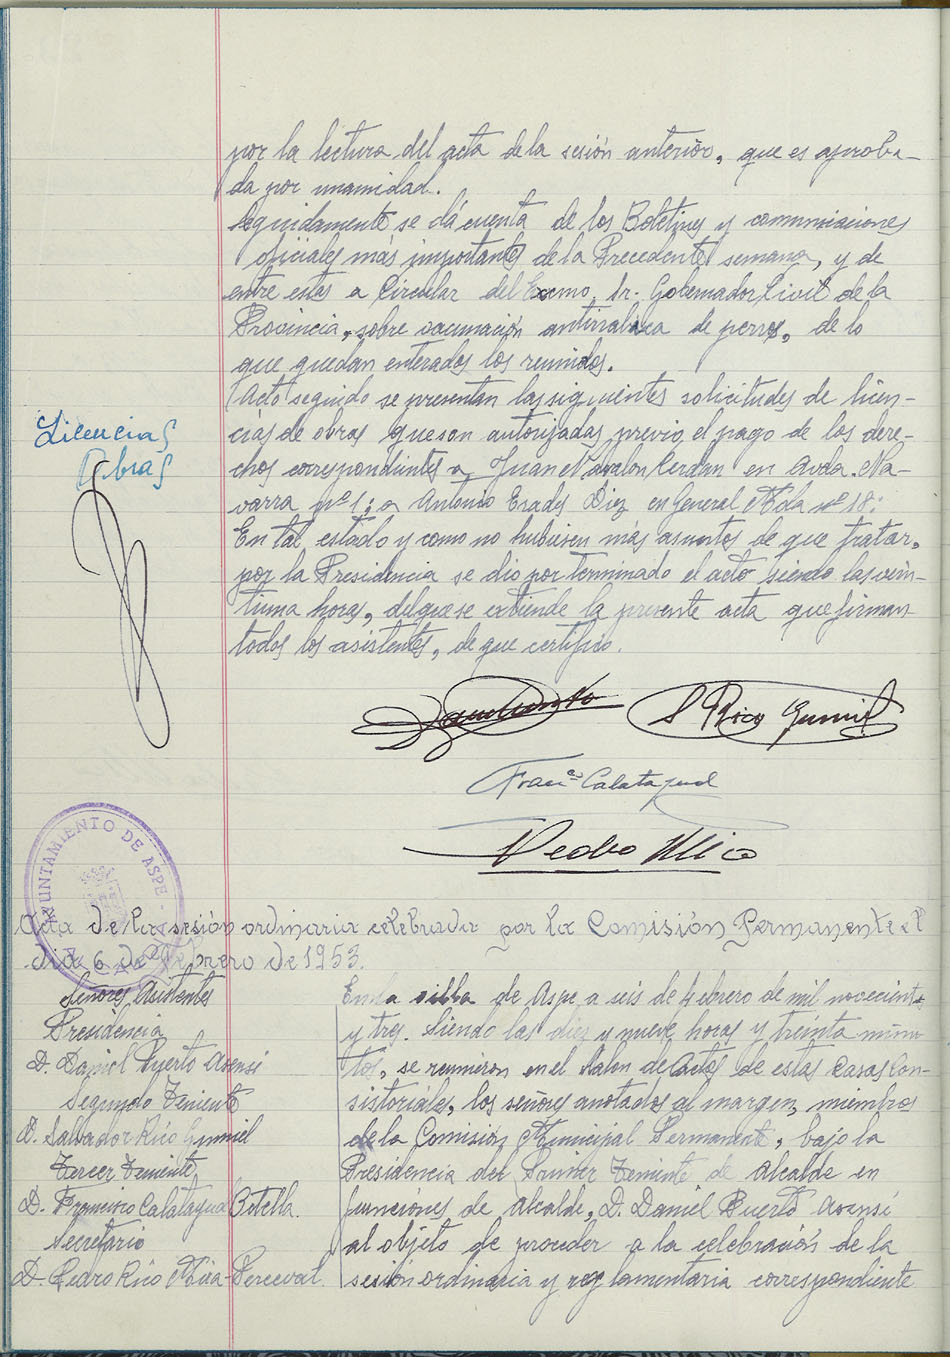 por la lectura del acta de la sesión anterior, que es aproba-
da por unanimidad.
Seguidamente se dá cuenta de los Boletines y comunicaciones
oficiales más importantes de la Precedente semana, y de
entre estas a Circular del Excmo. Sr. Gobernador Civil de la
Provincia, sobre vacunación antirrabica de perros, de lo
que quedan enterados los reunidos.
Acto seguido se presentan las siguientes solicitudes de licen-
Licencias
cias de obras que son autorizadas previo el pago de los dere-
Obras
chos correspondientes a Juan Navalon Cerdan en Avda. Na-
varra nº 1; a Antonio Erades Diez en General Mola nº 18.
En tal estado y como no hubiesen más asuntos de que tratar,
por la Presidencia se dio por terminado el acto siendo las vein-
tiuna horas, del que se extiende la presente acta que firman
todos los asistentes, de que certifico.
S Rico Gumiel
Franco Calatayud
Pedro Rico
AYUNTAMIENTO DE ASPE
Acta de la sesión ordinaria celebrada por la Comisión Permanente el
día 6 de Febrero de 1953.
Señores Asistentes
Presidencia
D. Daniel Puerto Asensi
Segundo Teniente
D. Salvador Rico Gumiel
Tercer Teniente
D. Francisco Calatayud Botella
Secretario
D. Pedro Rico Mira-Perceval
En la villa de Aspe a seis de febrero de mil novecient
y tres. Siendo las diez y nueve horas y treinta minu
tos, se reunieron en el Salon de Actos de estas Casas Con-
sistoriales, los señores anotados al margen, miembros
de la Comisión Municipal Permanente, bajo la
Presidencia del Primer Teniente de Alcalde en
funciones de Alcalde, D. Daniel Puerto Asensi
al objeto de proceder a la celebración de la
sesión ordinaria y reglamentaria correspondiente